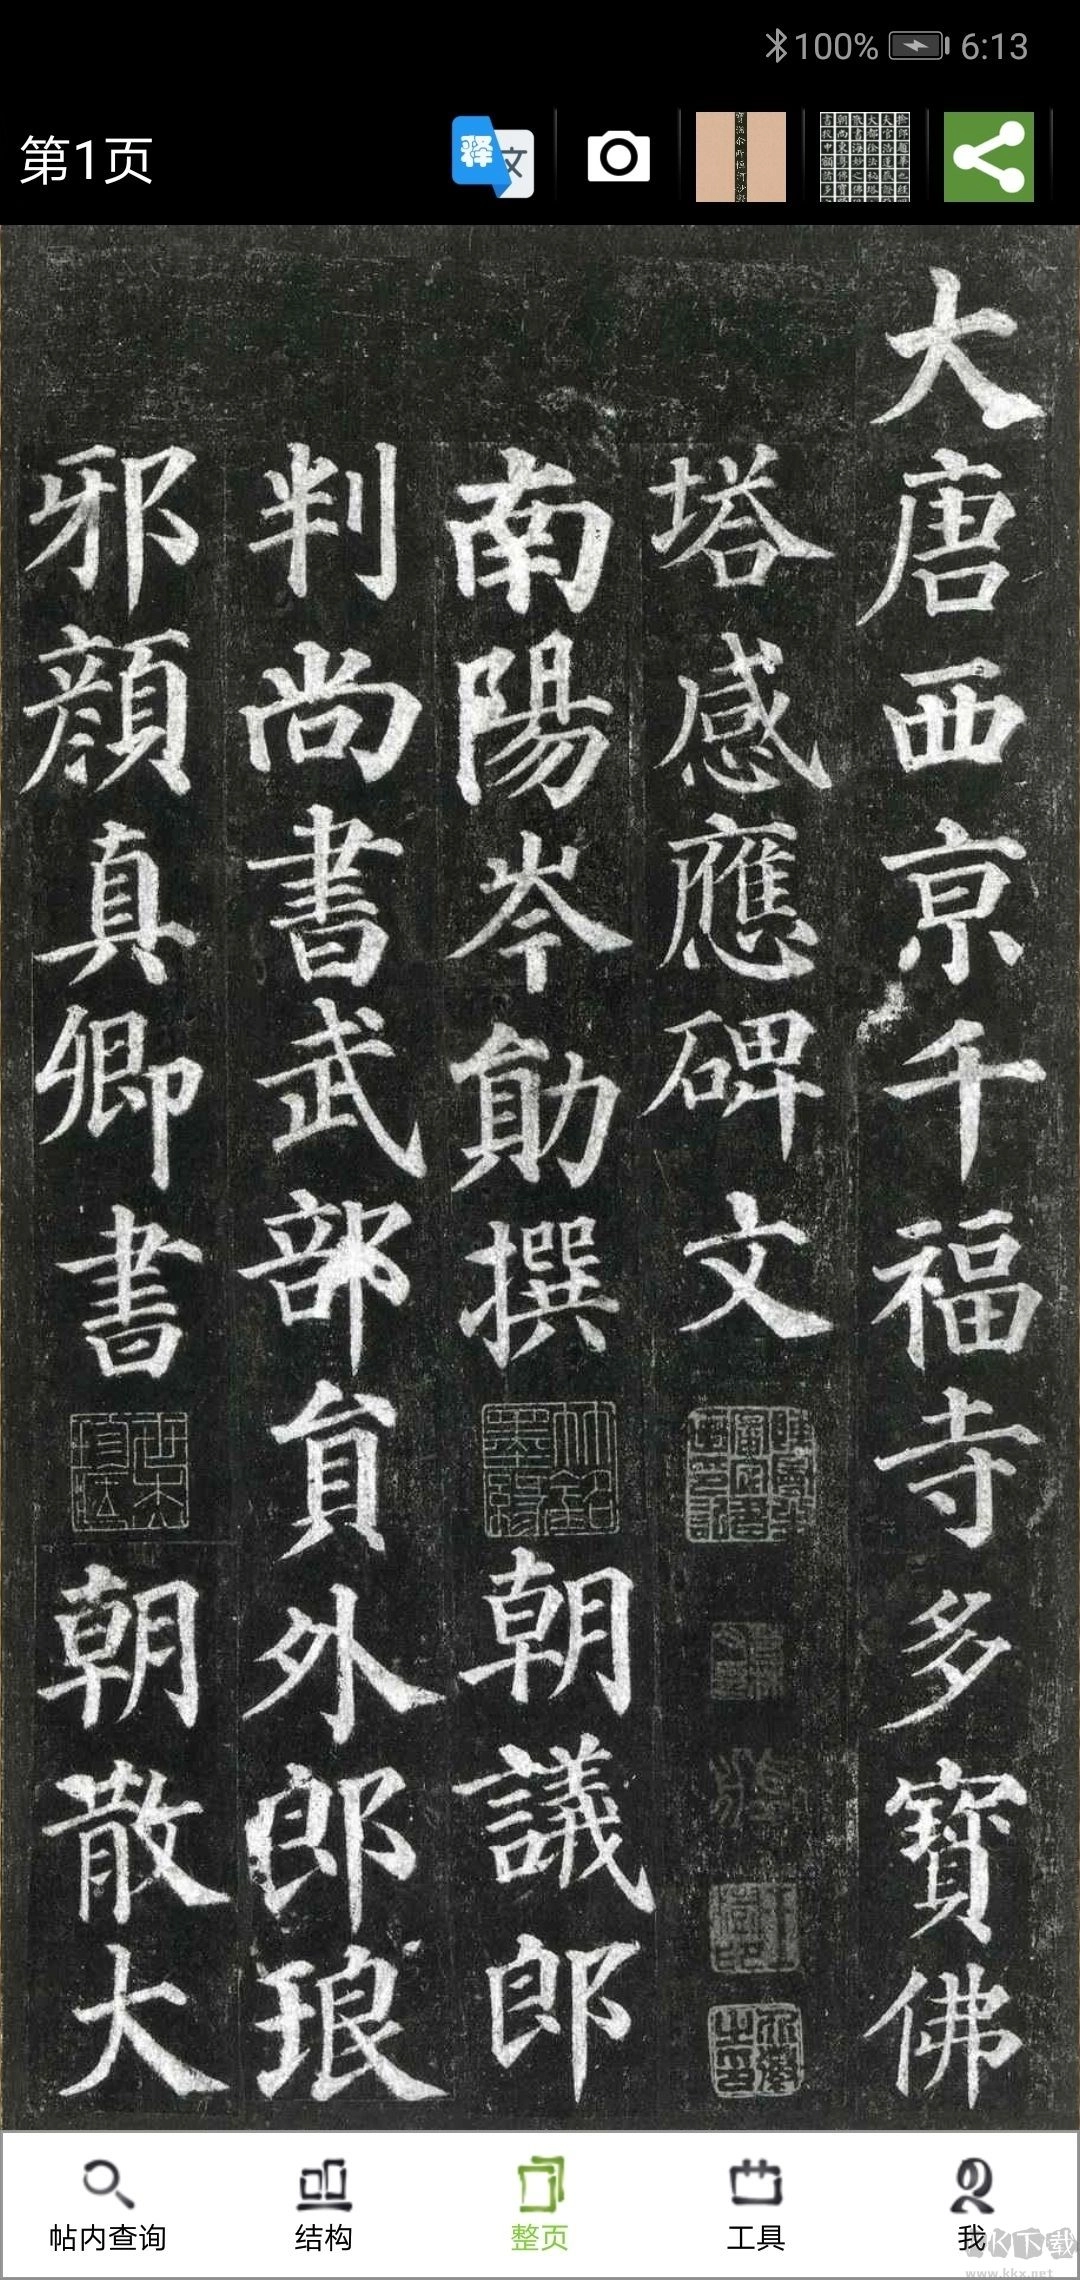 100% 6:13
第1页
大唐西京千福寺多寶佛
塔感應碑文
南陽岑勛撰 朝議郎
判尚書武部貟外郎琅
邪顏真卿書 朝散大
帖内查询 结构 整页 工具 我
KK下载
www.kkx.net